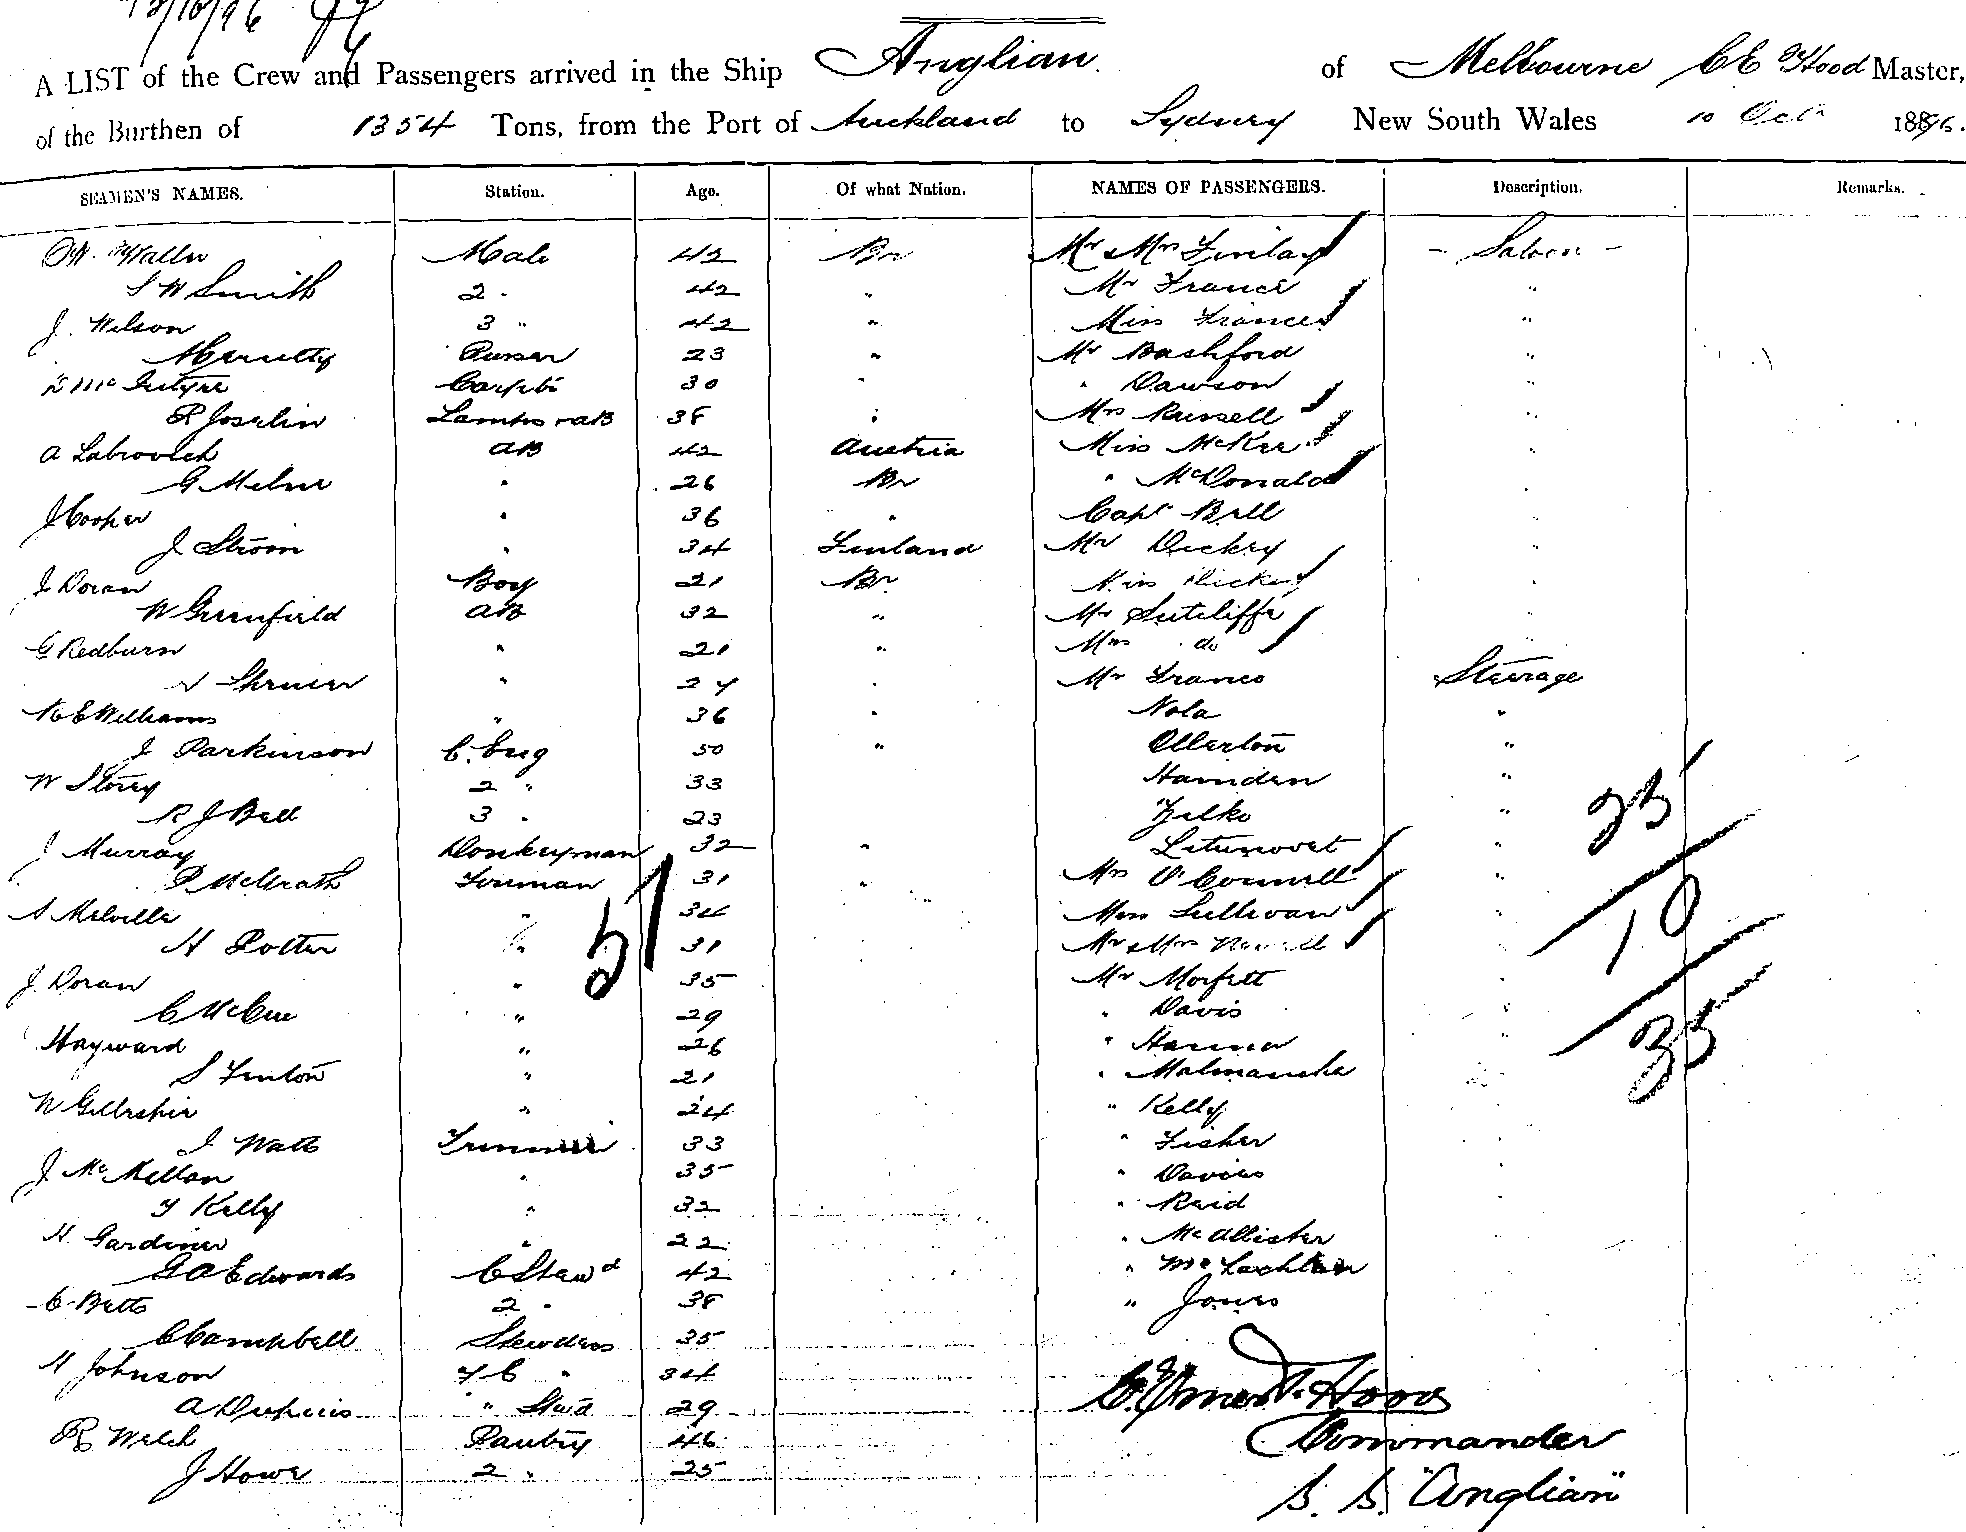 13/10/96
A LIST of the Crew and Passengers arrived in the Ship Anglian of Melbourne C E Hood Master,
of the Burthen of 1354 Tons, from the Port of Auckland to Sydney New South Wales 10 Oct 1896.
SEAMEN'S NAMES. Station. Age. Of what Nation. NAMES OF PASSENGERS. Description. Remarks.
W. Waller Mate 42 Br Mr & Mrs Finlay - Saloon -
S W Smith 2 " 42 " Mr Francis "
J. Wilson 3 " 42 " Miss Frances "
Purser 23 " Mr Bashford "
D McIntyre Carptr 30 " " Dawson "
R Joselin Lamps & AB 38 " Mrs Russell "
A Labrovich AB 42 Austria Miss McKee "
G Milne " 26 Br " McDonald "
J Cooper " 36 " Capt Bell "
J Strom " 34 Finland Mr Dickey "
J Doran Boy 21 Br Miss Dickey "
W Greenfield AB 32 " Mr Sutcliffe "
G Redburn " 21 " Mrs do "
" 24 " Mr Franco Steerage
W E Williams " 36 " Nola "
J Parkinson C. Eng 50 " Ollerton "
W Storey 2 " 33 Hamden "
R J Bell 3 " 23 Zelko "
J Murray Donkeyman 32 " "
P McGrath Fireman 31 " Mrs O'Connell "
S Melville " 34 Miss Sullivan "
H Potter " 31 Mr & Mrs "
J. Doran " 35 Mr Morfett "
C McCue " 29 " Davis "
Hayward " 26 " Hanna "
S Fenton " 21 " Malmanche "
W Gillespie " 24 " Kelly "
J Watts Trimmer 33 " Fisher "
J McMellan " 35 " Davies "
T Kelly " 32 " Reid "
H Gardiner " 22 " McAllister
G A Edwards C Stewd 42 " McLachlan
C Betts 2 " 38 " Jones
C Campbell Stewdess 35
H Johnson F C " 34
A Dupuis " Stwd 29
R Welch Pantry 46
J Howe 2 " 25
51
25
10
35
C. Ernest Hood
Commander
S. S. "Anglian"